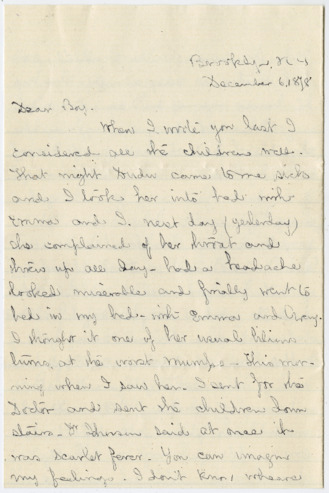 Brooklyn, N Y
December 6, 1878
Dear Boy.
When I wrote you last I
considered all the children well.
That night came to me sick
and I took her into bed with
Emma and I. next day (yesterday)
she complained of her throat and
threw up all day - had a headache
looked miserable and finally went to
bed in my bed - with Emma and
I thought it one of her usual bilious
turns, at the worst mumps - This mor-
ning when I saw her. I sent for the
Doctor and sent the children down
stairs - Dr said at once it
was scarlet fever. You can imagine
my feelings. I don't know where